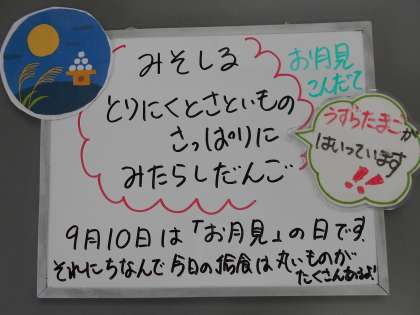 みそしる
お月見
こんだて
とりにくとさといもの
さっぱりに
みたらしだんご
うずらたまごが
はいっています
!!
9月10日は「お月見」の日です。
それにちなんで今日の給食は丸いものが
たくさんあるよ!